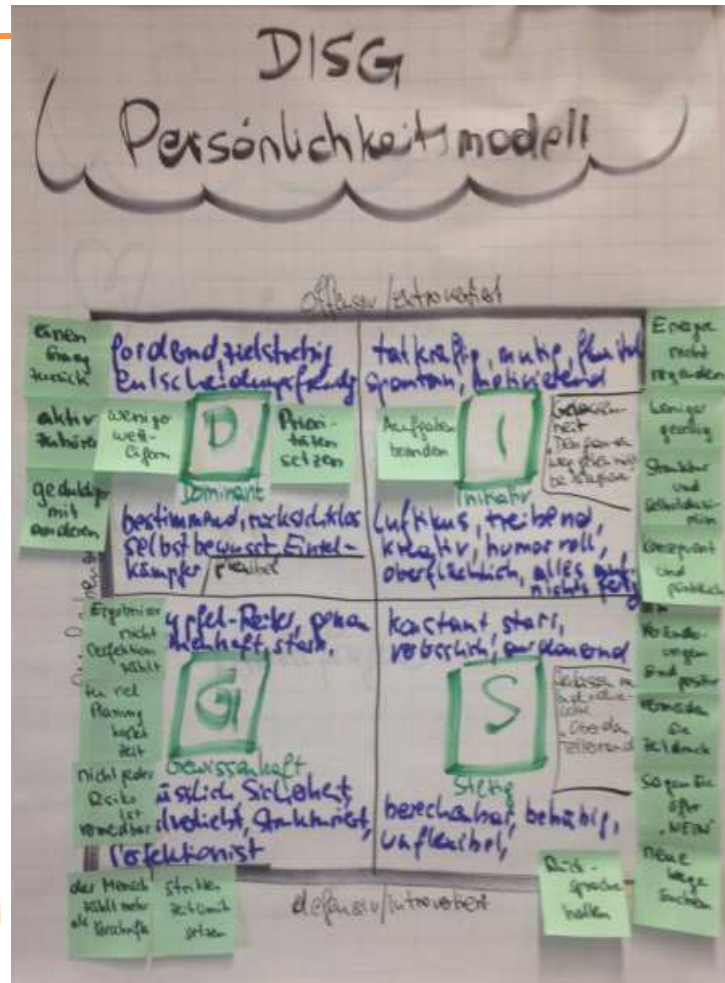 DISG
Persönlichkeitsmodell
offensiv/extrovertiert
einen
Gang
zurück
aktiv
zuhören
geduldiger
mit
anderen
fordernd, zielstrebig
Entscheidungsfreudig
weniger
wett-
eifern
D
Dominant
Priori-
täten
setzen
bestimmend, rücksichtslos
selbstbewusst, Einzel-
kämpfer
tatkräftig, mutig,
spontan, motivierend
Aufgaben
beenden
I
Initiativ
Luftikus, treibend,
kreativ, humorvoll,
oberflächlich, alles
nichts
Energie
nicht
vergeuden
weniger
gesellig
Struktur
und
konsequent
und
pünktlich
Ergebnisse
nicht
Perfektion
zählt
zu viel
Planung
kostet
Zeit
nicht jedes
Risiko
ist
vermeidbar
der Mensch
zählt mehr
als Vorschrift
setzen
G
Gewissenhaft
Sicherheit,
strukturiert,
Perfektionist
konstant, starr,
verlässlich, ausdauernd
S
Stetig
berechenbar, behäbig,
unflexibel,
Verände-
rungen
sind
positiv
vermeiden
Sie
Zeitdruck
sagen Sie
öfter
"NEIN"
neue
Wege
suchen
Rück-
sprache
halten
defensiv/introvertiert